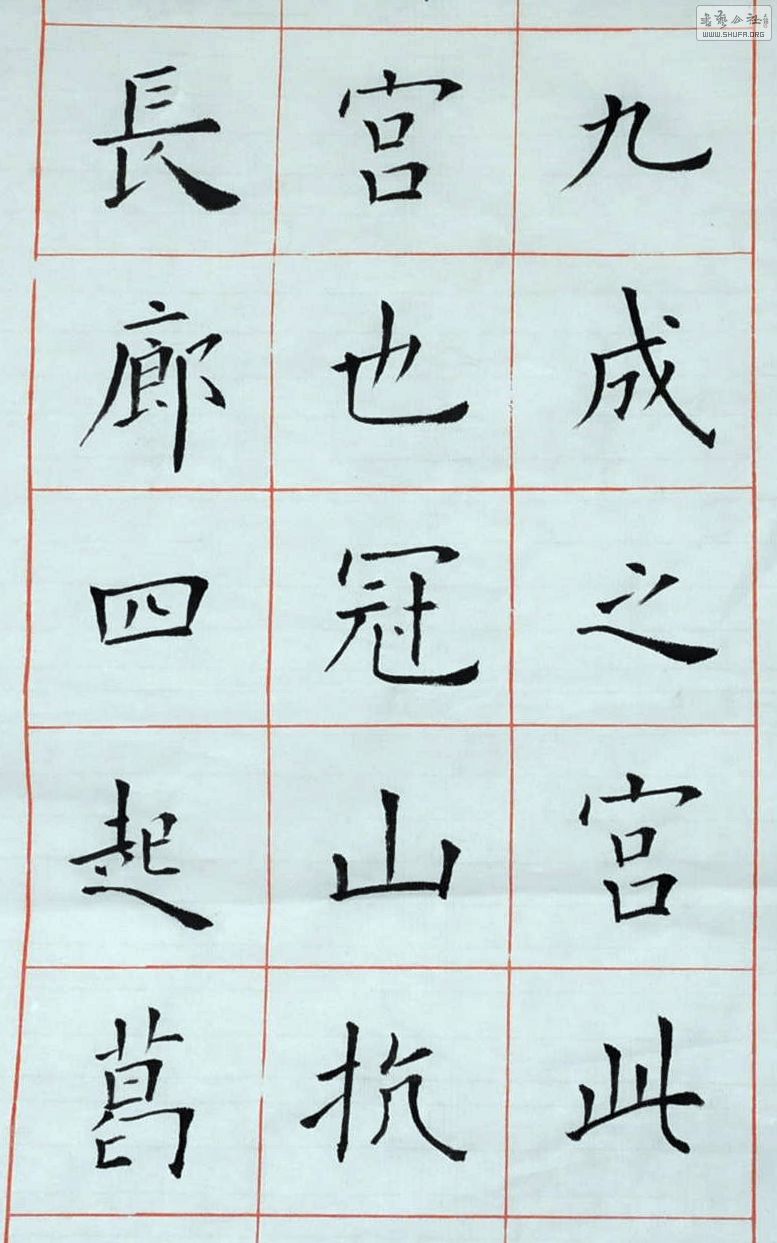 九成之宫此
宫也冠山抗
長廊四起葛
書藝公社
WWW.SHUFA.ORG